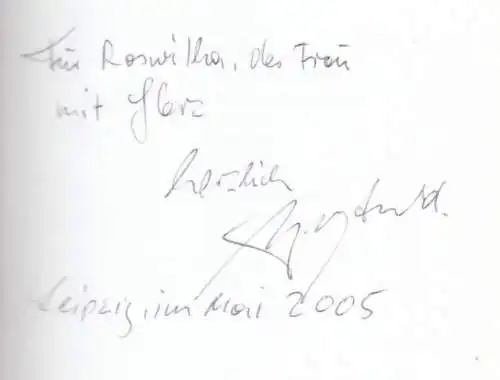 Für Roswitha, der Frau
mit Herz
herzlich
Leipzig, im Mai 2005